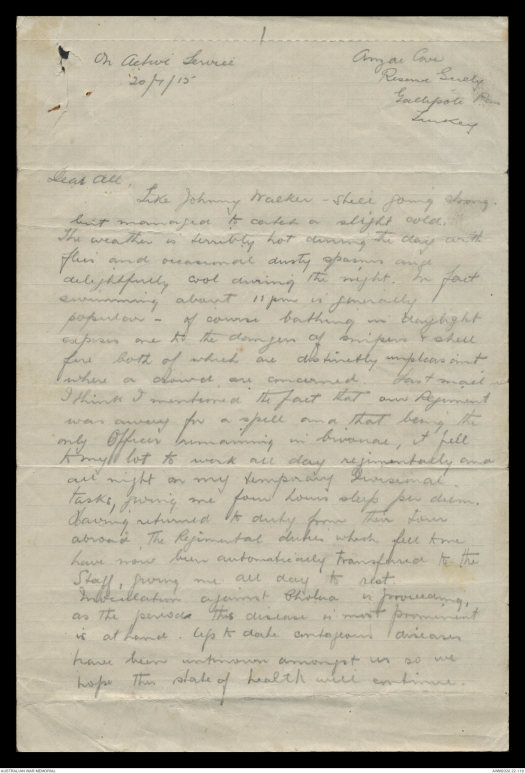 1
On Active Service
20/7/15
Anzac Cove
Reserve Gully
Gallipoli Pen
Turkey
Dear All,
Like Johnny Walker - still going strong.
but managed to catch a slight cold.
The weather is terribly hot during the day with
flies and occasional dusty spasms and
delightfully cool during the night. In fact
swimming about 11pm is generally
popular - of course bathing in daylight
exposes one to the dangers of snipers & shell
fire both of which are distinctly unpleasant
where a crowd are concerned. Last mail
I think I mentioned the fact that our Regiment
was away for a spell and that being the
only Officer remaining in bivouac, it fell
to my lot to work all day regimentally and
all night on my temporary Divisional
tasks, giving me four hours sleep per diem.
Having returned to duty from their tour
abroad, the Regimental duties which fell to me
have now been automatically transferred to the
Staff, giving me all day to rest.
Inoculation against Cholera is proceeding,
as the period this disease is most prominent
is at hand. Up to date contagious diseases
have been unknown amongst us so we
hope this state of health will continue.
AUSTRALIAN WAR MEMORIAL